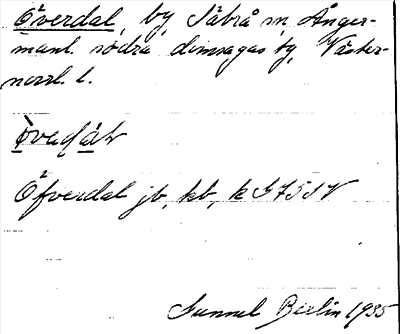 Överdal, by, Säbrå sn, Ånger-
manl. södra domsagas tg, Väster-
norrl. l.
Öfverdal jb, kb, k
Gunnel Berlin 1935